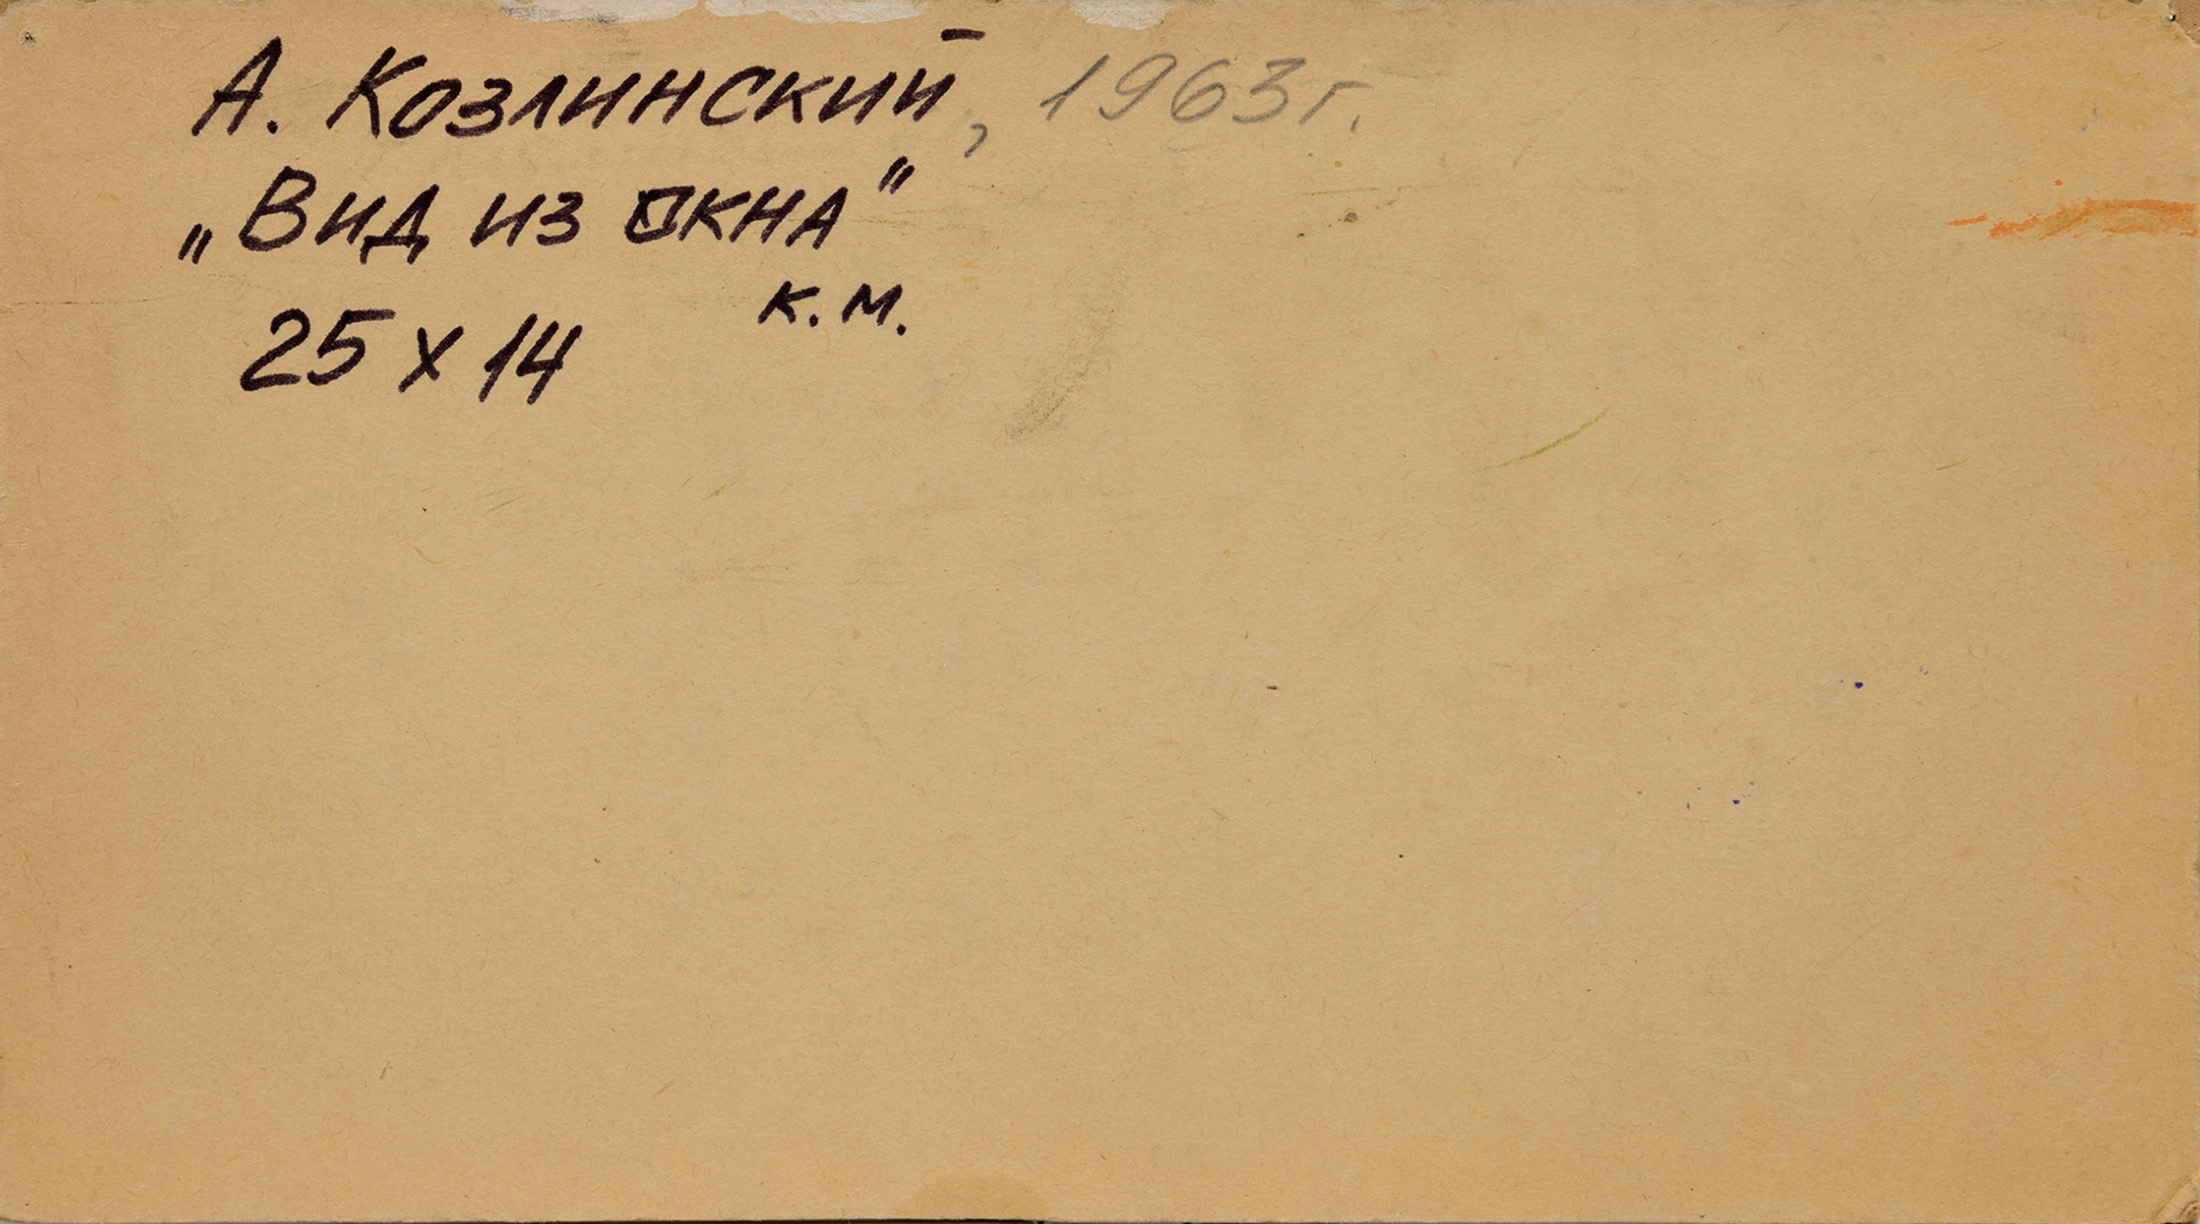 А. Козлинский, 1963г.
„Вид из окна”
к.м.
25 х 14